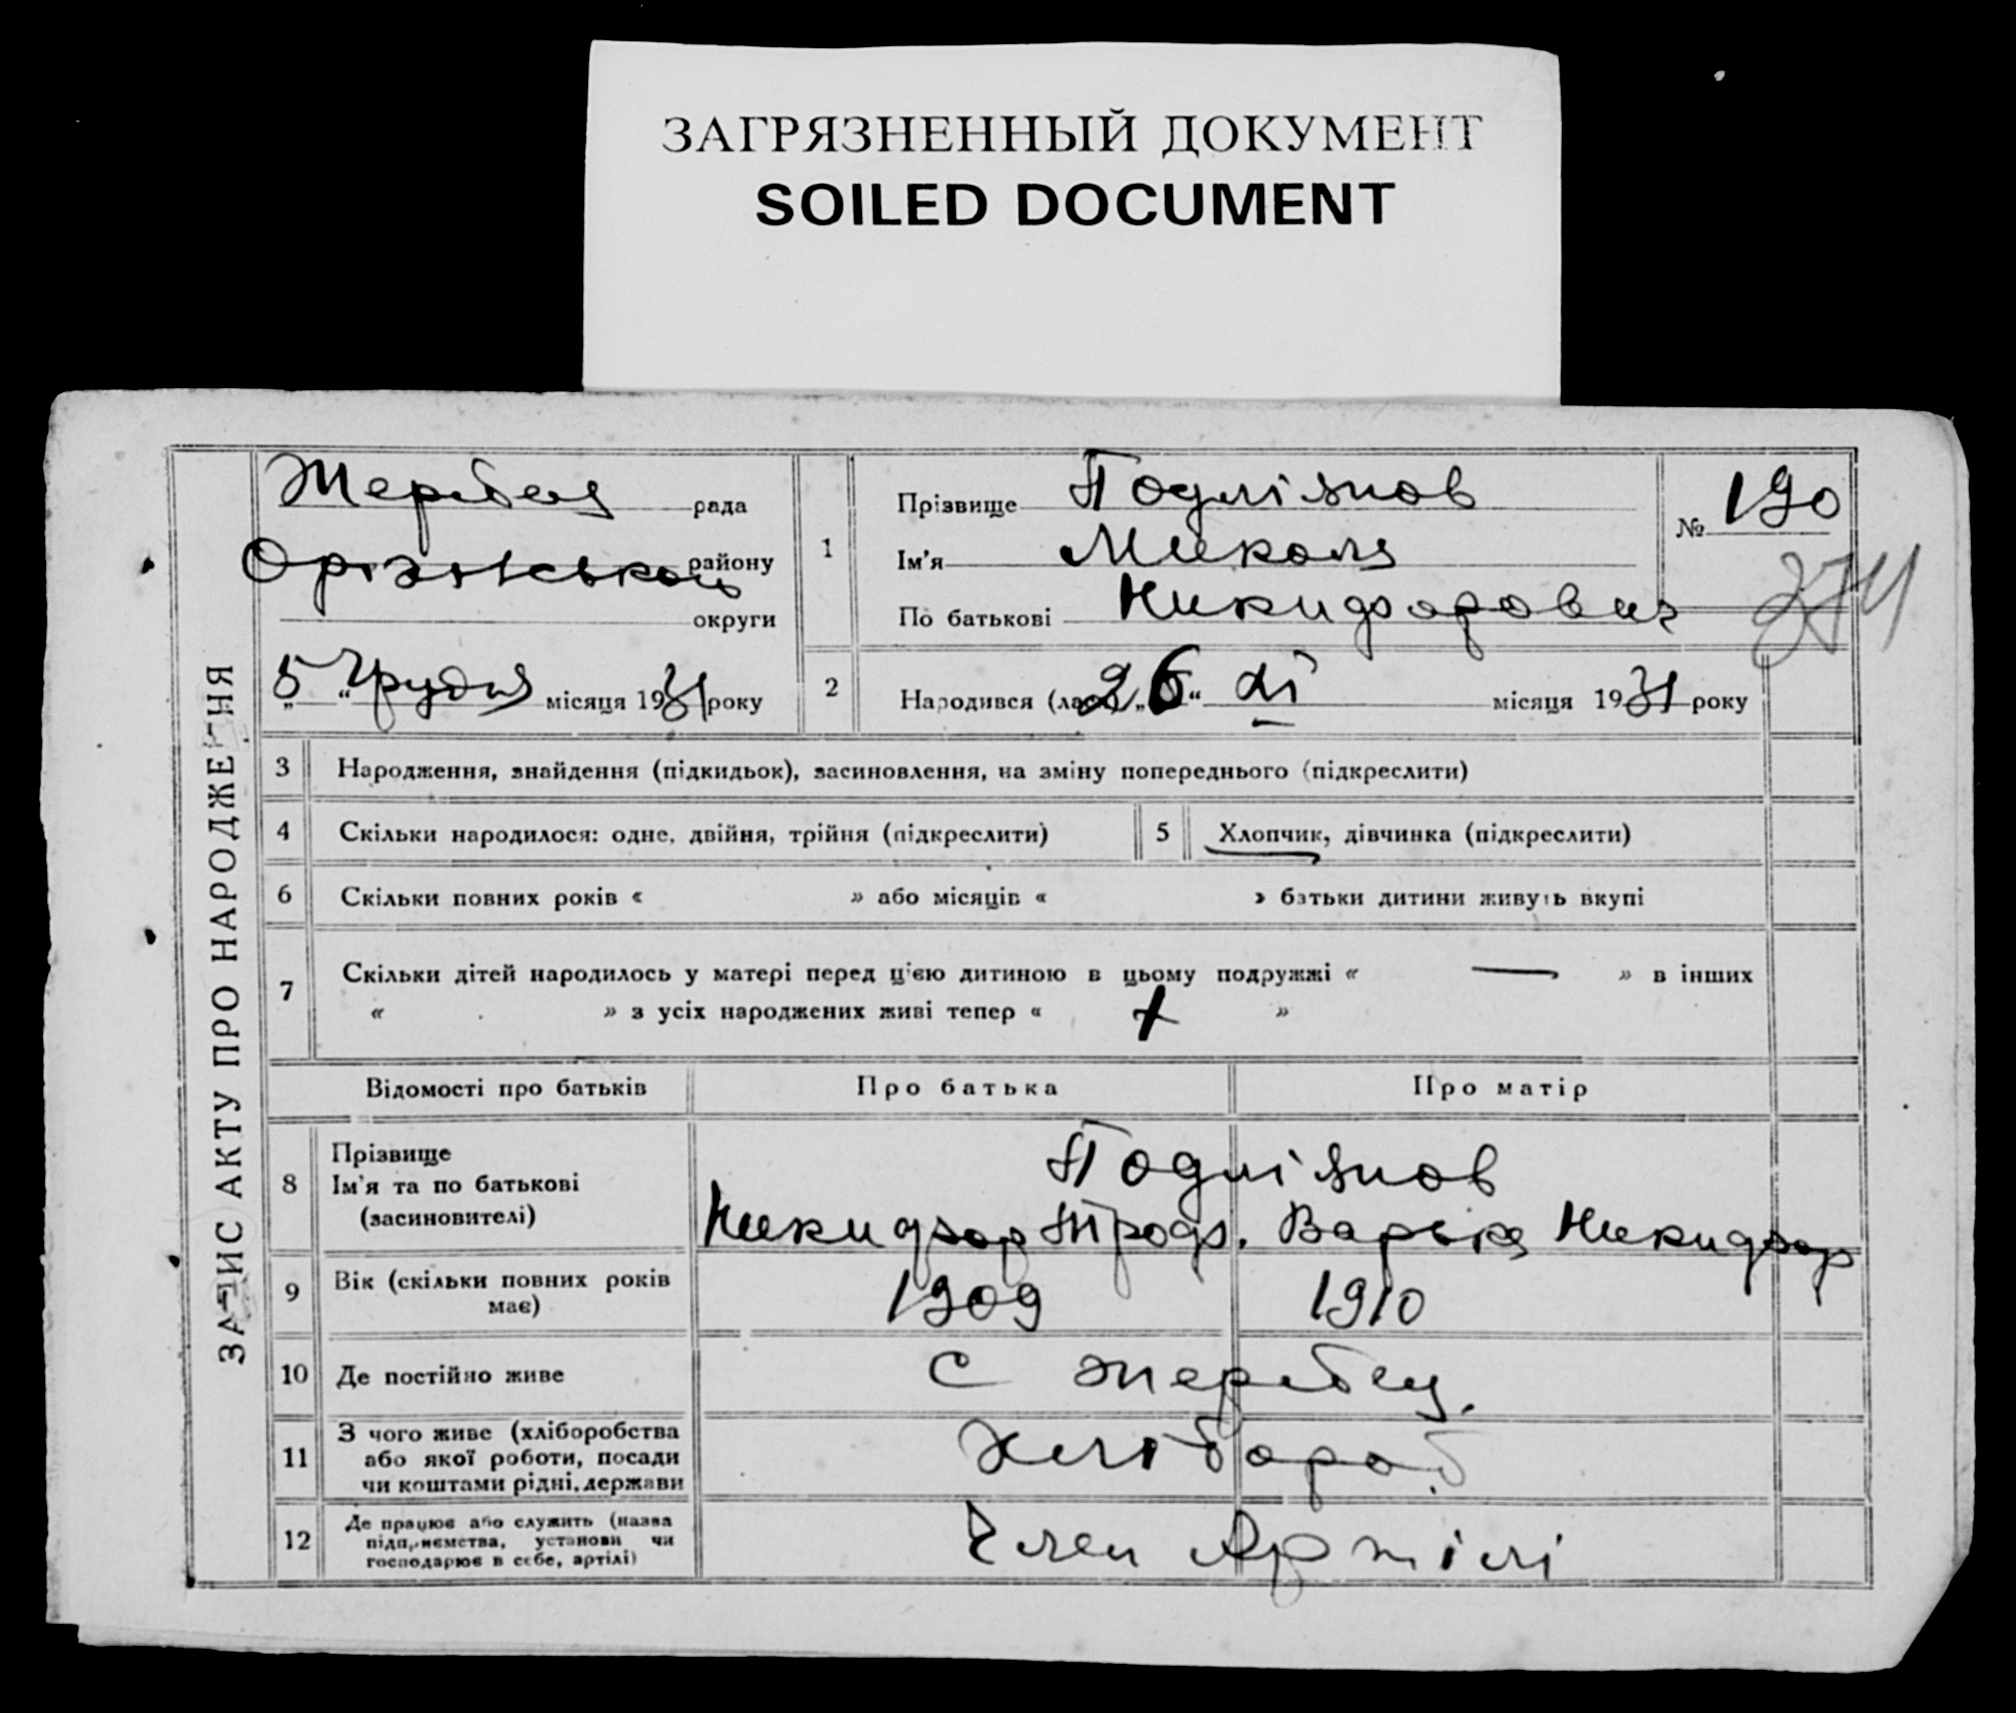 ЗАГРЯЗНЕННЫЙ ДОКУМЕНТ
SOILED DOCUMENT
ЗАПИС АКТУ ПРО НАРОДЖЕННЯ
рада
району
округи
„5“ Грудня місяця 1931 року
1
Прізвище
Ім'я Микола
По батькові Никифорович
№ 190
274
2
Народився (лась) „26“ XI місяця 1931 року
3 Народження, знайдення (підкидьок), засиновлення, на зміну попереднього (підкреслити)
4 Скільки народилося: одне, двійня, трійня (підкреслити)
5 Хлопчик, дівчинка (підкреслити)
6 Скільки повних років « » або місяців « » батьки дитини живуть вкупі
7 Скільки дітей народилось у матері перед цією дитиною в цьому подружжі « — » в інших
« » з усіх народжених живі тепер « »
Відомості про батьків
Про батька
Про матір
8
Прізвище
Ім'я та по батькові
(засиновителі)
Никифор Троф. Варька Никифор
9
Вік (скільки повних років
має)
1909 1910
10 Де постійно живе
с
11
З чого живе (хліборобства
або якої роботи, посади
чи коштами рідні, держави
Хлібороб
12
Де працює або служить (назва
підприємства, установи чи
господарює в себе, артілі)
Член Артілі